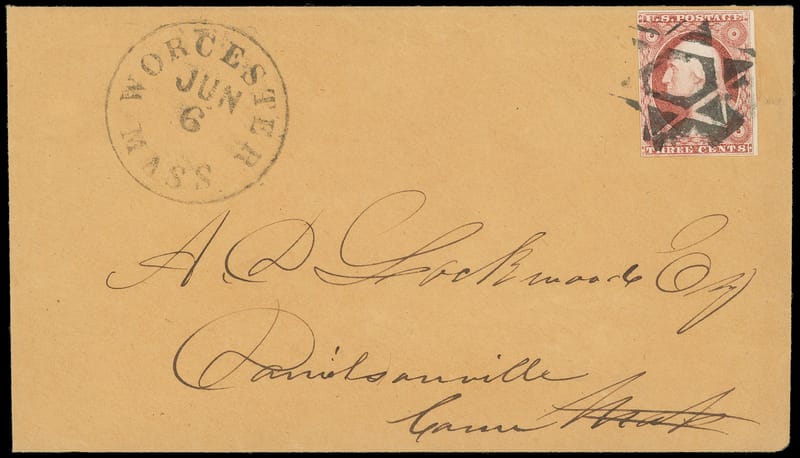 WORCESTER MASS
JUN
6
U.S. POSTAGE
THREE CENTS
A. D. Lockwood Esq
Danielsonville
Conn